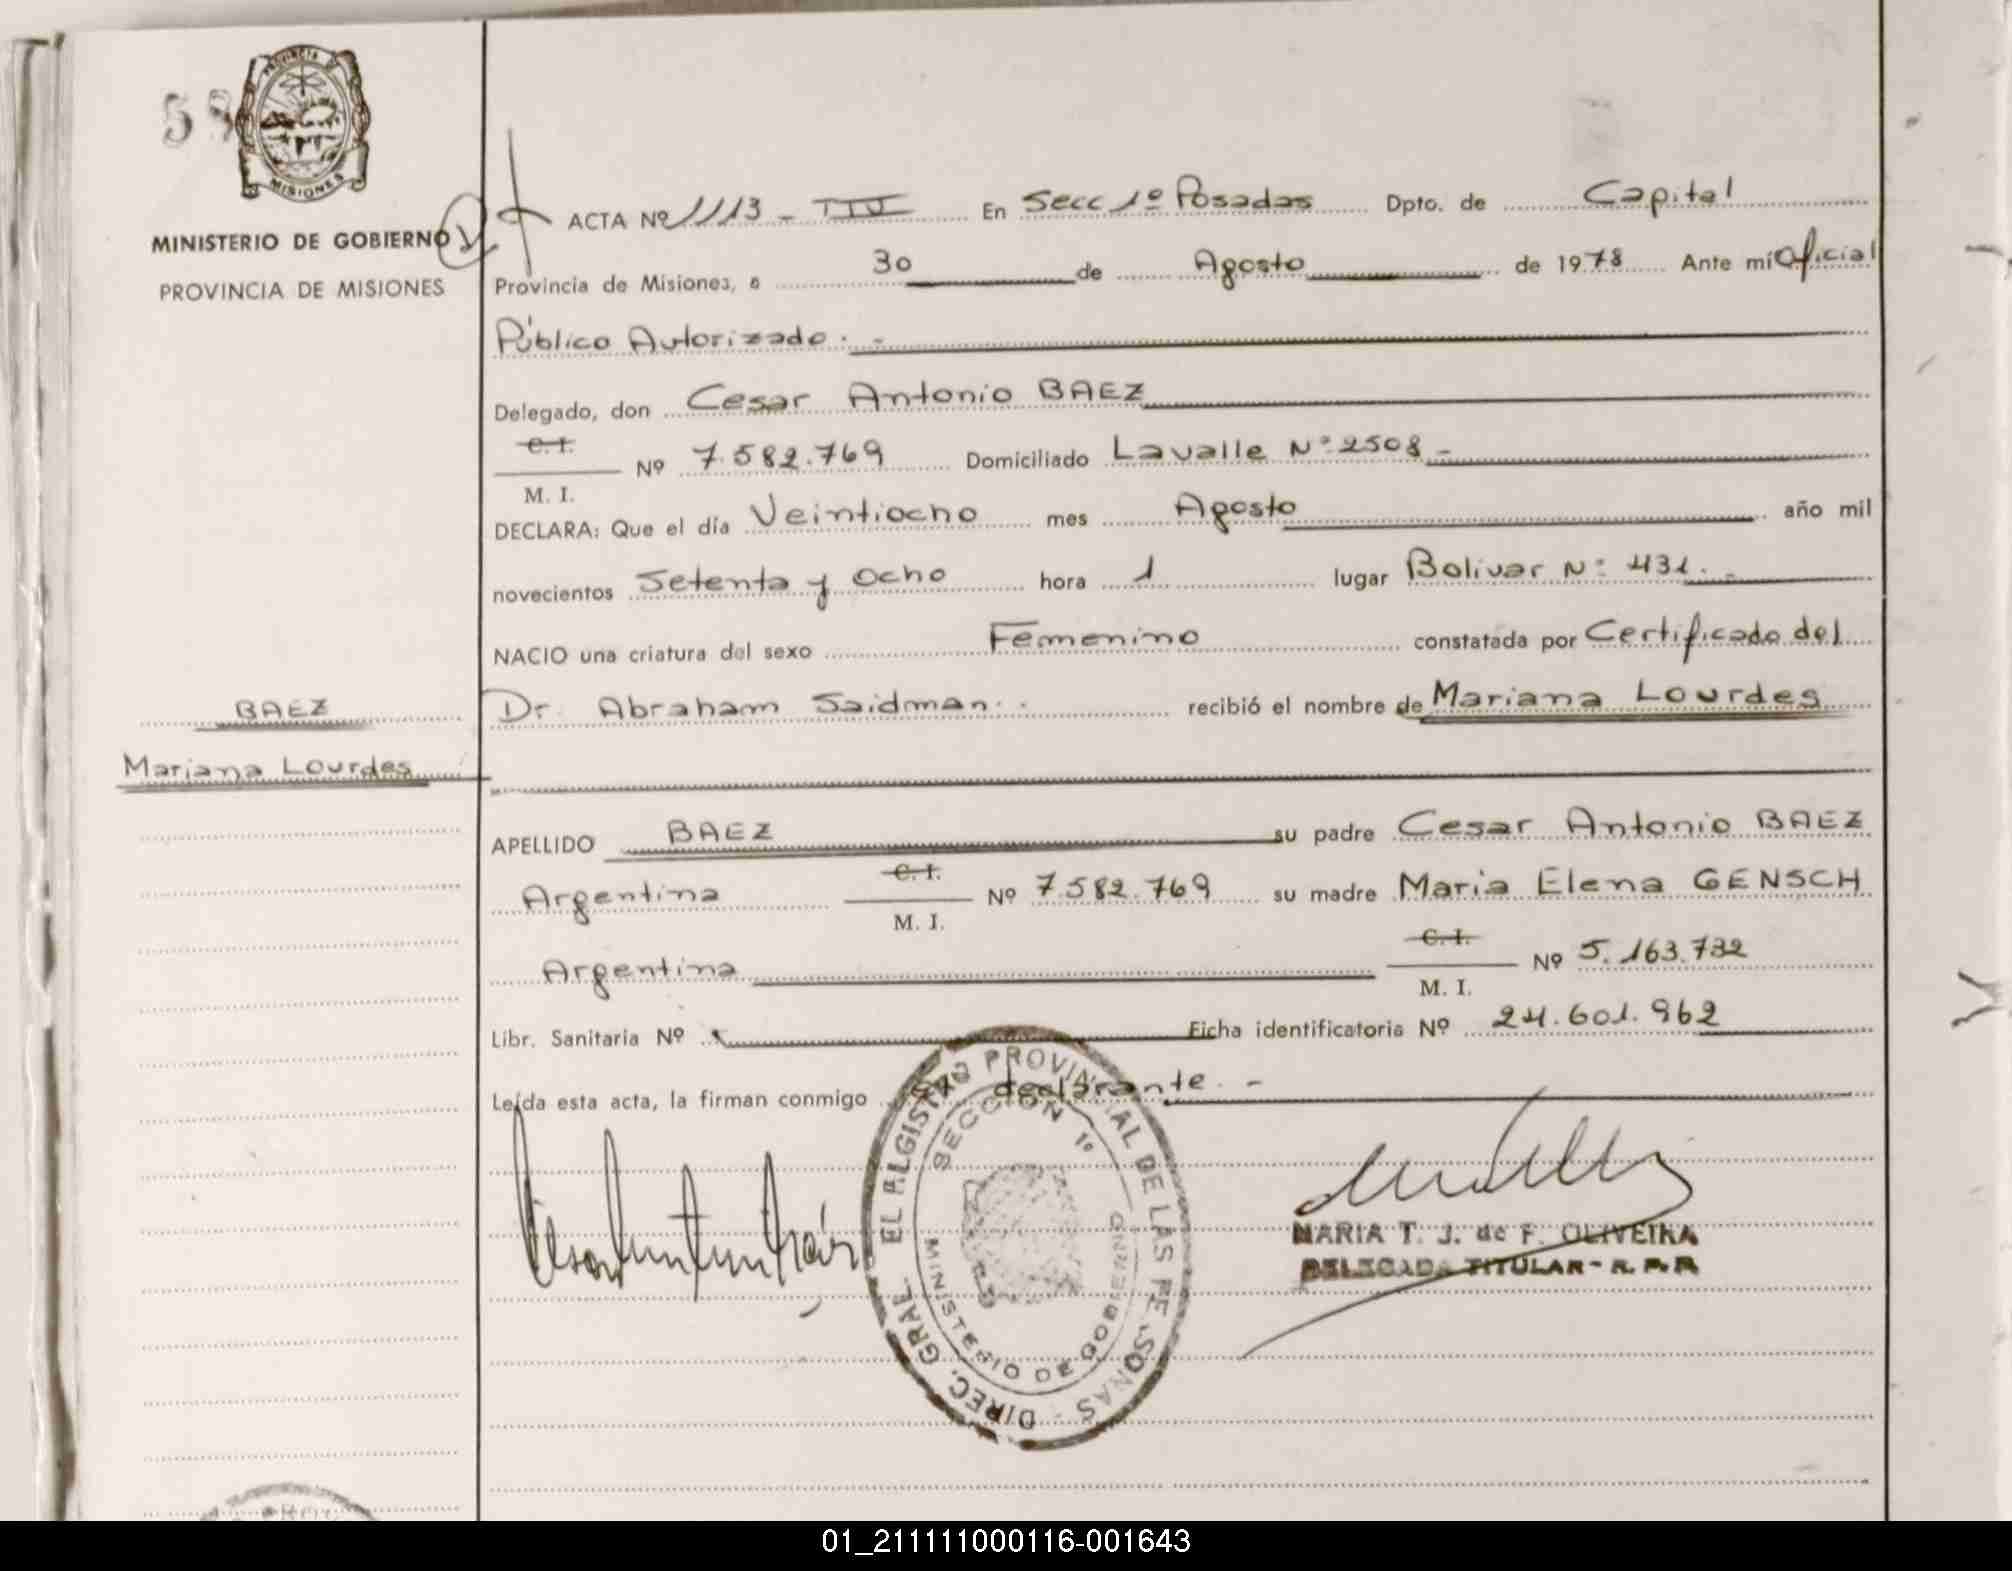 58
PROVINCIA DE
MISIONES
MINISTERIO DE GOBIERNO
PROVINCIA DE MISIONES
ACTA Nº 1113 - TIV En Secc 1º Posadas Dpto. de Capital
Provincia de Misiones, a 30 de Agosto de 1978 Ante mí Oficial
Público Autorizado. -
Delegado, don Cesar Antonio BAEZ
C. I.
Nº 7.582.769 Domiciliado Lavalle Nº 2508 -
M. I.
DECLARA: Que el día Veintiocho mes Agosto año mil
novecientos Setenta y Ocho hora 1 lugar Bolivar Nº 431. -
NACIO una criatura del sexo Femenino constatada por Certificado del
BAEZ
Dr. Abraham Saidman. recibió el nombre de Mariana Lourdes
Mariana Lourdes
APELLIDO BAEZ su padre Cesar Antonio BAEZ
C. I.
Argentina Nº 7.582.769 su madre Maria Elena GENSCH
M. I.
C. I.
Argentina Nº 5.163.732
M. I.
Libr. Sanitaria Nº Ficha identificatoria Nº 24.601.962
Leída esta acta, la firman conmigo declarante. -
DIREC. GRAL. PROVINCIAL DE LAS PERSONAS
SECCION 1º
MINISTERIO DE GOBIERNO
MARIA T. J. de F. OLIVEIRA
DELEGADA TITULAR - R. P. P.
01_211111000116-001643